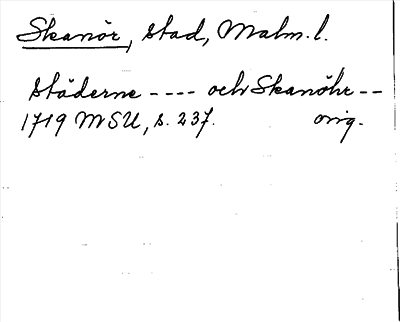 Skanör, stad, Malm. l.
städerne ---- och Skanöhr --
1719 MSU, s. 237. orig.